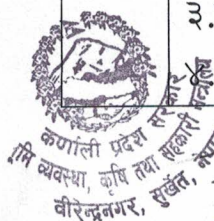 कर्णाली प्रदेश सरकार
भूमि व्यवस्था, कृषि तथा सहकारी मन्त्रालय
वीरेन्द्रनगर, सुर्खेत, नेपाल